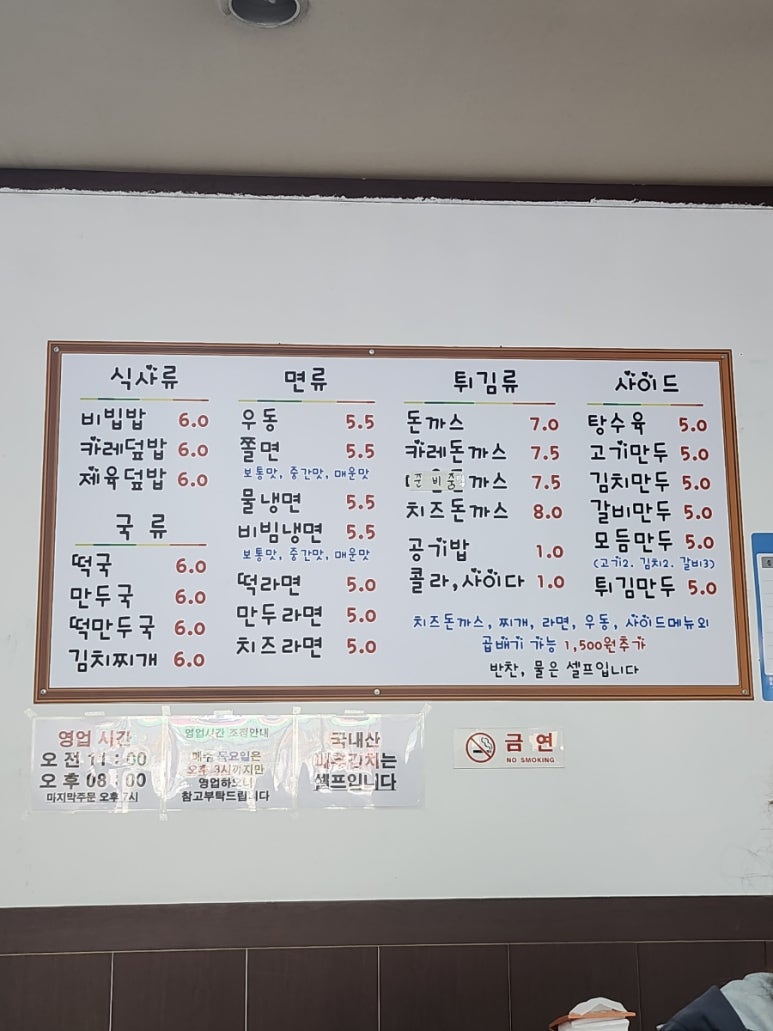 식사류
비빕밥 6.0
카레덮밥 6.0
제육덮밥 6.0
국류
떡국 6.0
만두국 6.0
떡만두국 6.0
김치찌개 6.0
면류
우동 5.5
쫄면 5.5
보통맛, 중간맛, 매운맛
물냉면 5.5
비빔냉면 5.5
보통맛, 중간맛, 매운맛
떡라면 5.0
만두라면 5.0
치즈라면 5.0
튀김류
돈까스 7.0
카레돈까스 7.5
준비중 까스 7.5
치즈돈까스 8.0
공기밥 1.0
콜라,사이다 1.0
사이드
탕수육 5.0
고기만두 5.0
김치만두 5.0
갈비만두 5.0
모듬만두 5.0
(고기2. 김치2. 갈비3)
튀김만두 5.0
치즈돈까스, 찌개, 라면, 우동, 사이드메뉴외
곱배기 가능 1,500원추가
반찬, 물은 셀프입니다
영업 시간
오전 11:00
오후 08:00
마지막주문 오후 7시
영업시간 조정안내
매주 목요일은
오후 3시까지만
영업하오니
참고부탁드립니다
국내산
배추김치는
셀프입니다
금연
NO SMOKING